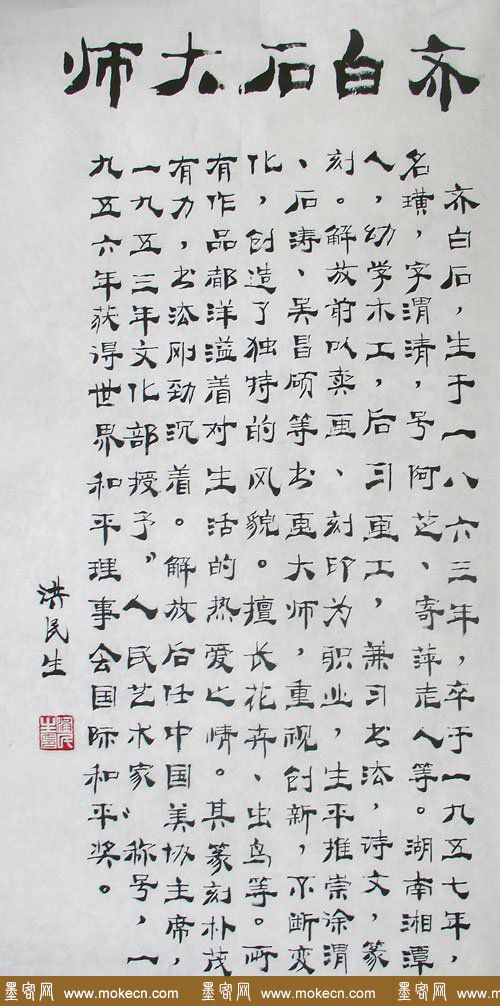 齐白石大师
齐白石，生于一八六三年，卒于一九五七年，
名璜，字渭清，号阿芝、寄萍老人等。湖南湘潭
人，幼学木工，后习画工，兼习书法，诗文，篆
刻。解放前以卖画、刻印为职业，生平推崇徐渭
、石涛、吴昌硕等书画大师，重视创新，不断变
化，创造了独特的风貌。擅长花卉、虫鸟等。所
有作品都洋溢着对生活的热爱之情。其篆刻朴茂
有力，书法刚劲沉着。解放后任中国美协主席，
一九五三年文化部授予“人民艺术家”称号，一
九五六年获得世界和平理事会国际和平奖。
洪民生
墨客网 www.mokecn.com 墨客网 www.mokecn.com 墨客网 www.mokecn.com